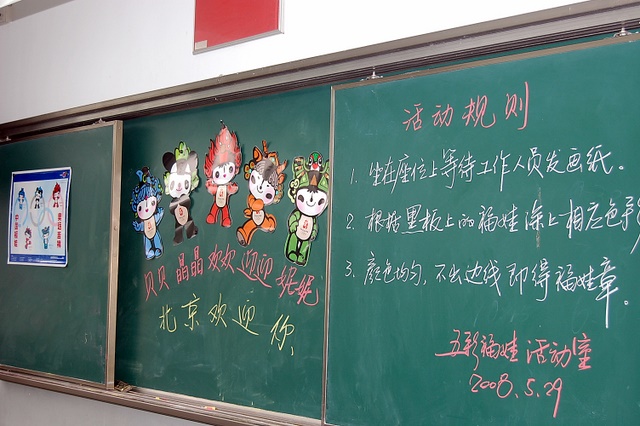 贝贝 晶晶 欢欢 迎迎 妮妮
北京欢迎你
活动规则
1. 坐在座位上等待工作人员发画纸。
2. 根据黑板上的福娃涂上相应色彩
3. 颜色均匀，不出边线即得福娃章。
五彩福娃活动室
2008.5.29